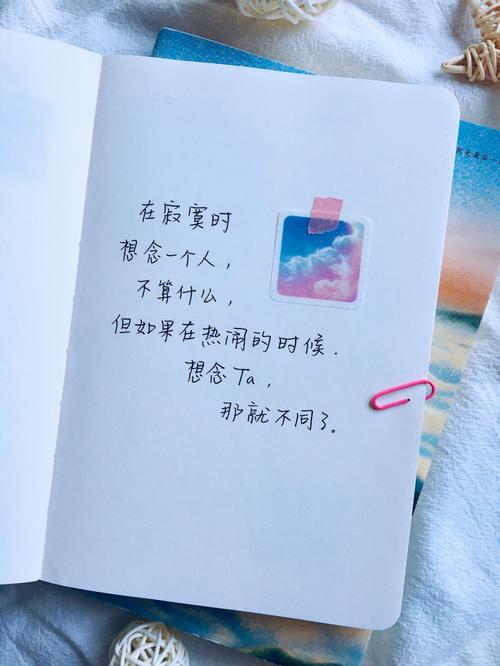 在寂寞时
想念一个人，
不算什么，
但如果在热闹的时候.
想念Ta，
那就不同了。